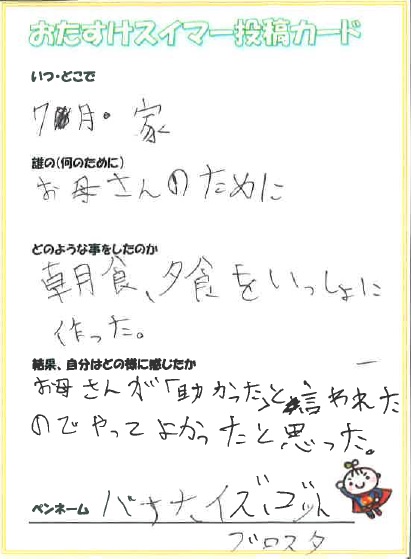 おたすけスイマー投稿カード
いつ・どこで
7月・家
誰の(何のために)
お母さんのために
どのような事をしたのか
朝食、夕食をいっしょに
作った。
結果、自分はどの様に感じたか
お母さんが「助かった」と言われた
のでやってよかったと思った。
ペンネーム バナナイズゴット
ブロスタ